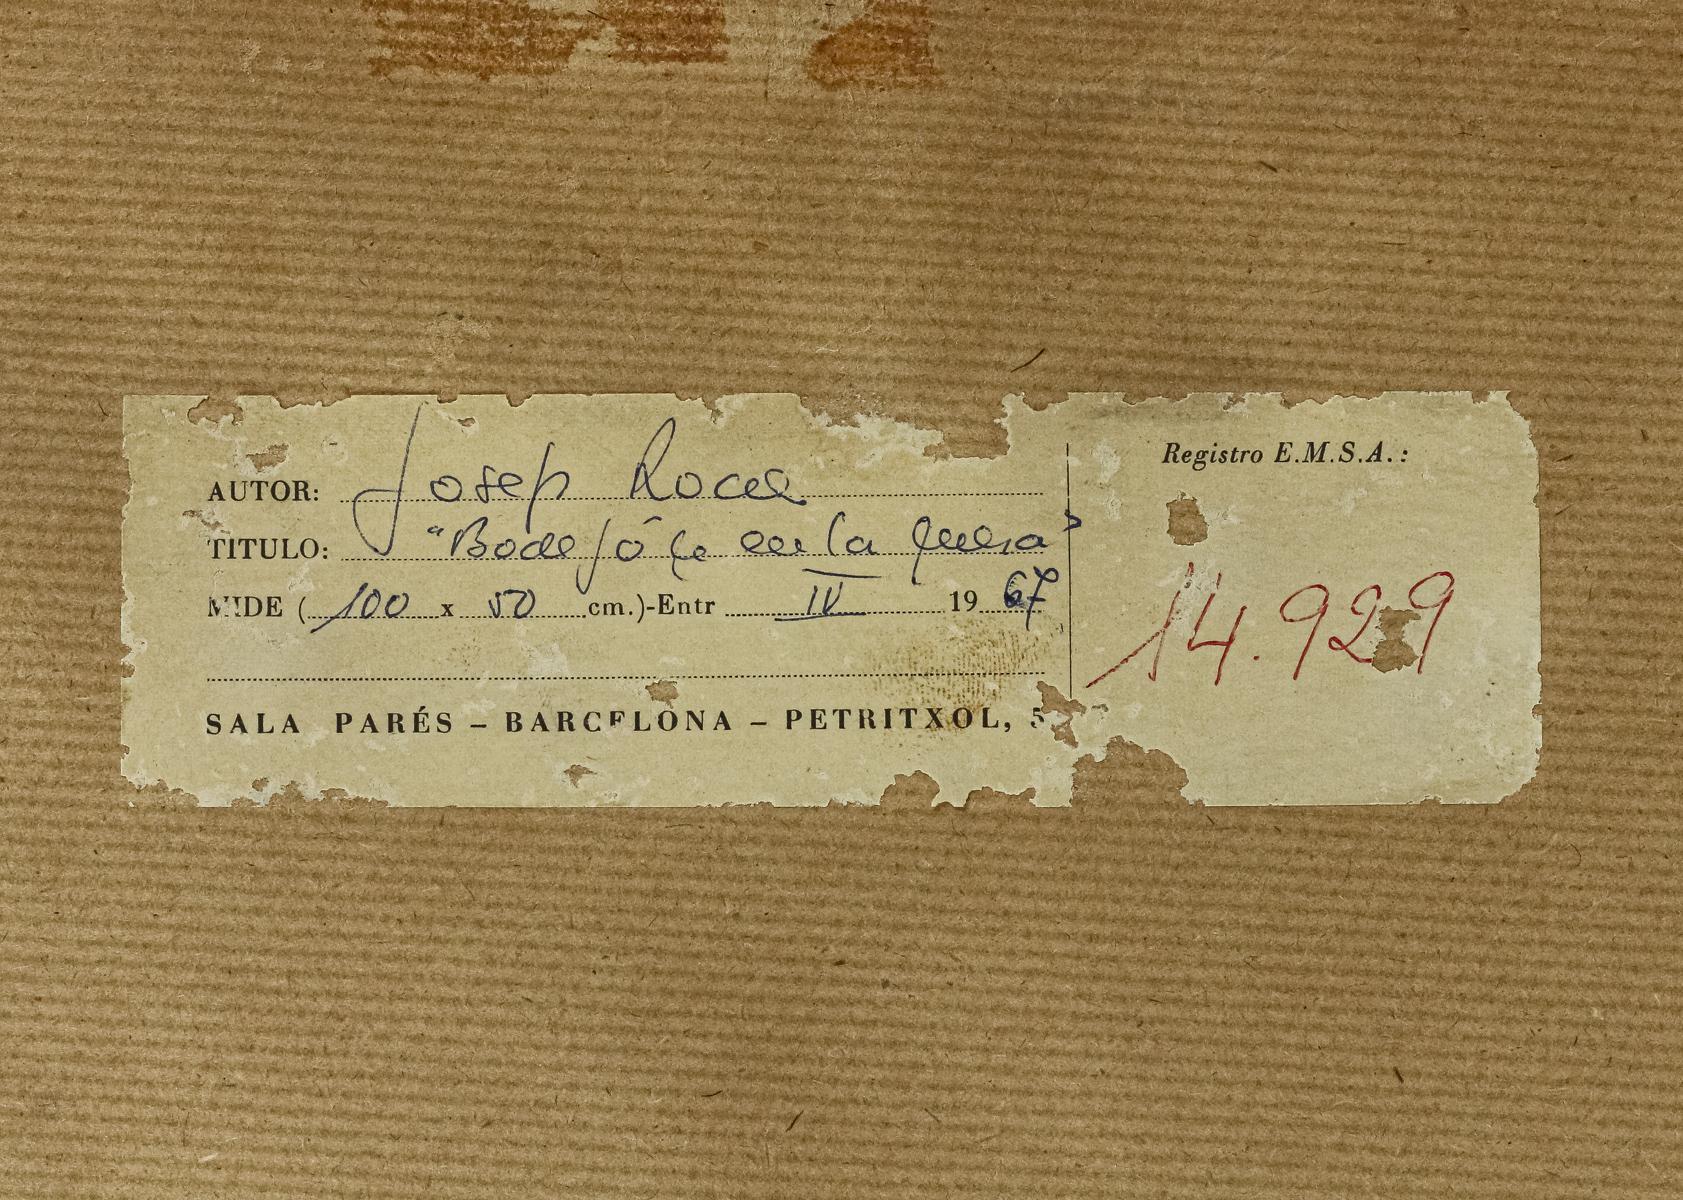 AUTOR: Josep Roca
TITULO: "Bodegó en la mesa"
MIDE ( 100 x 50 cm.)-Entr IV 19 67
SALA PARÉS – BARCELONA – PETRITXOL, 5
Registro E.M.S.A.:
14.929